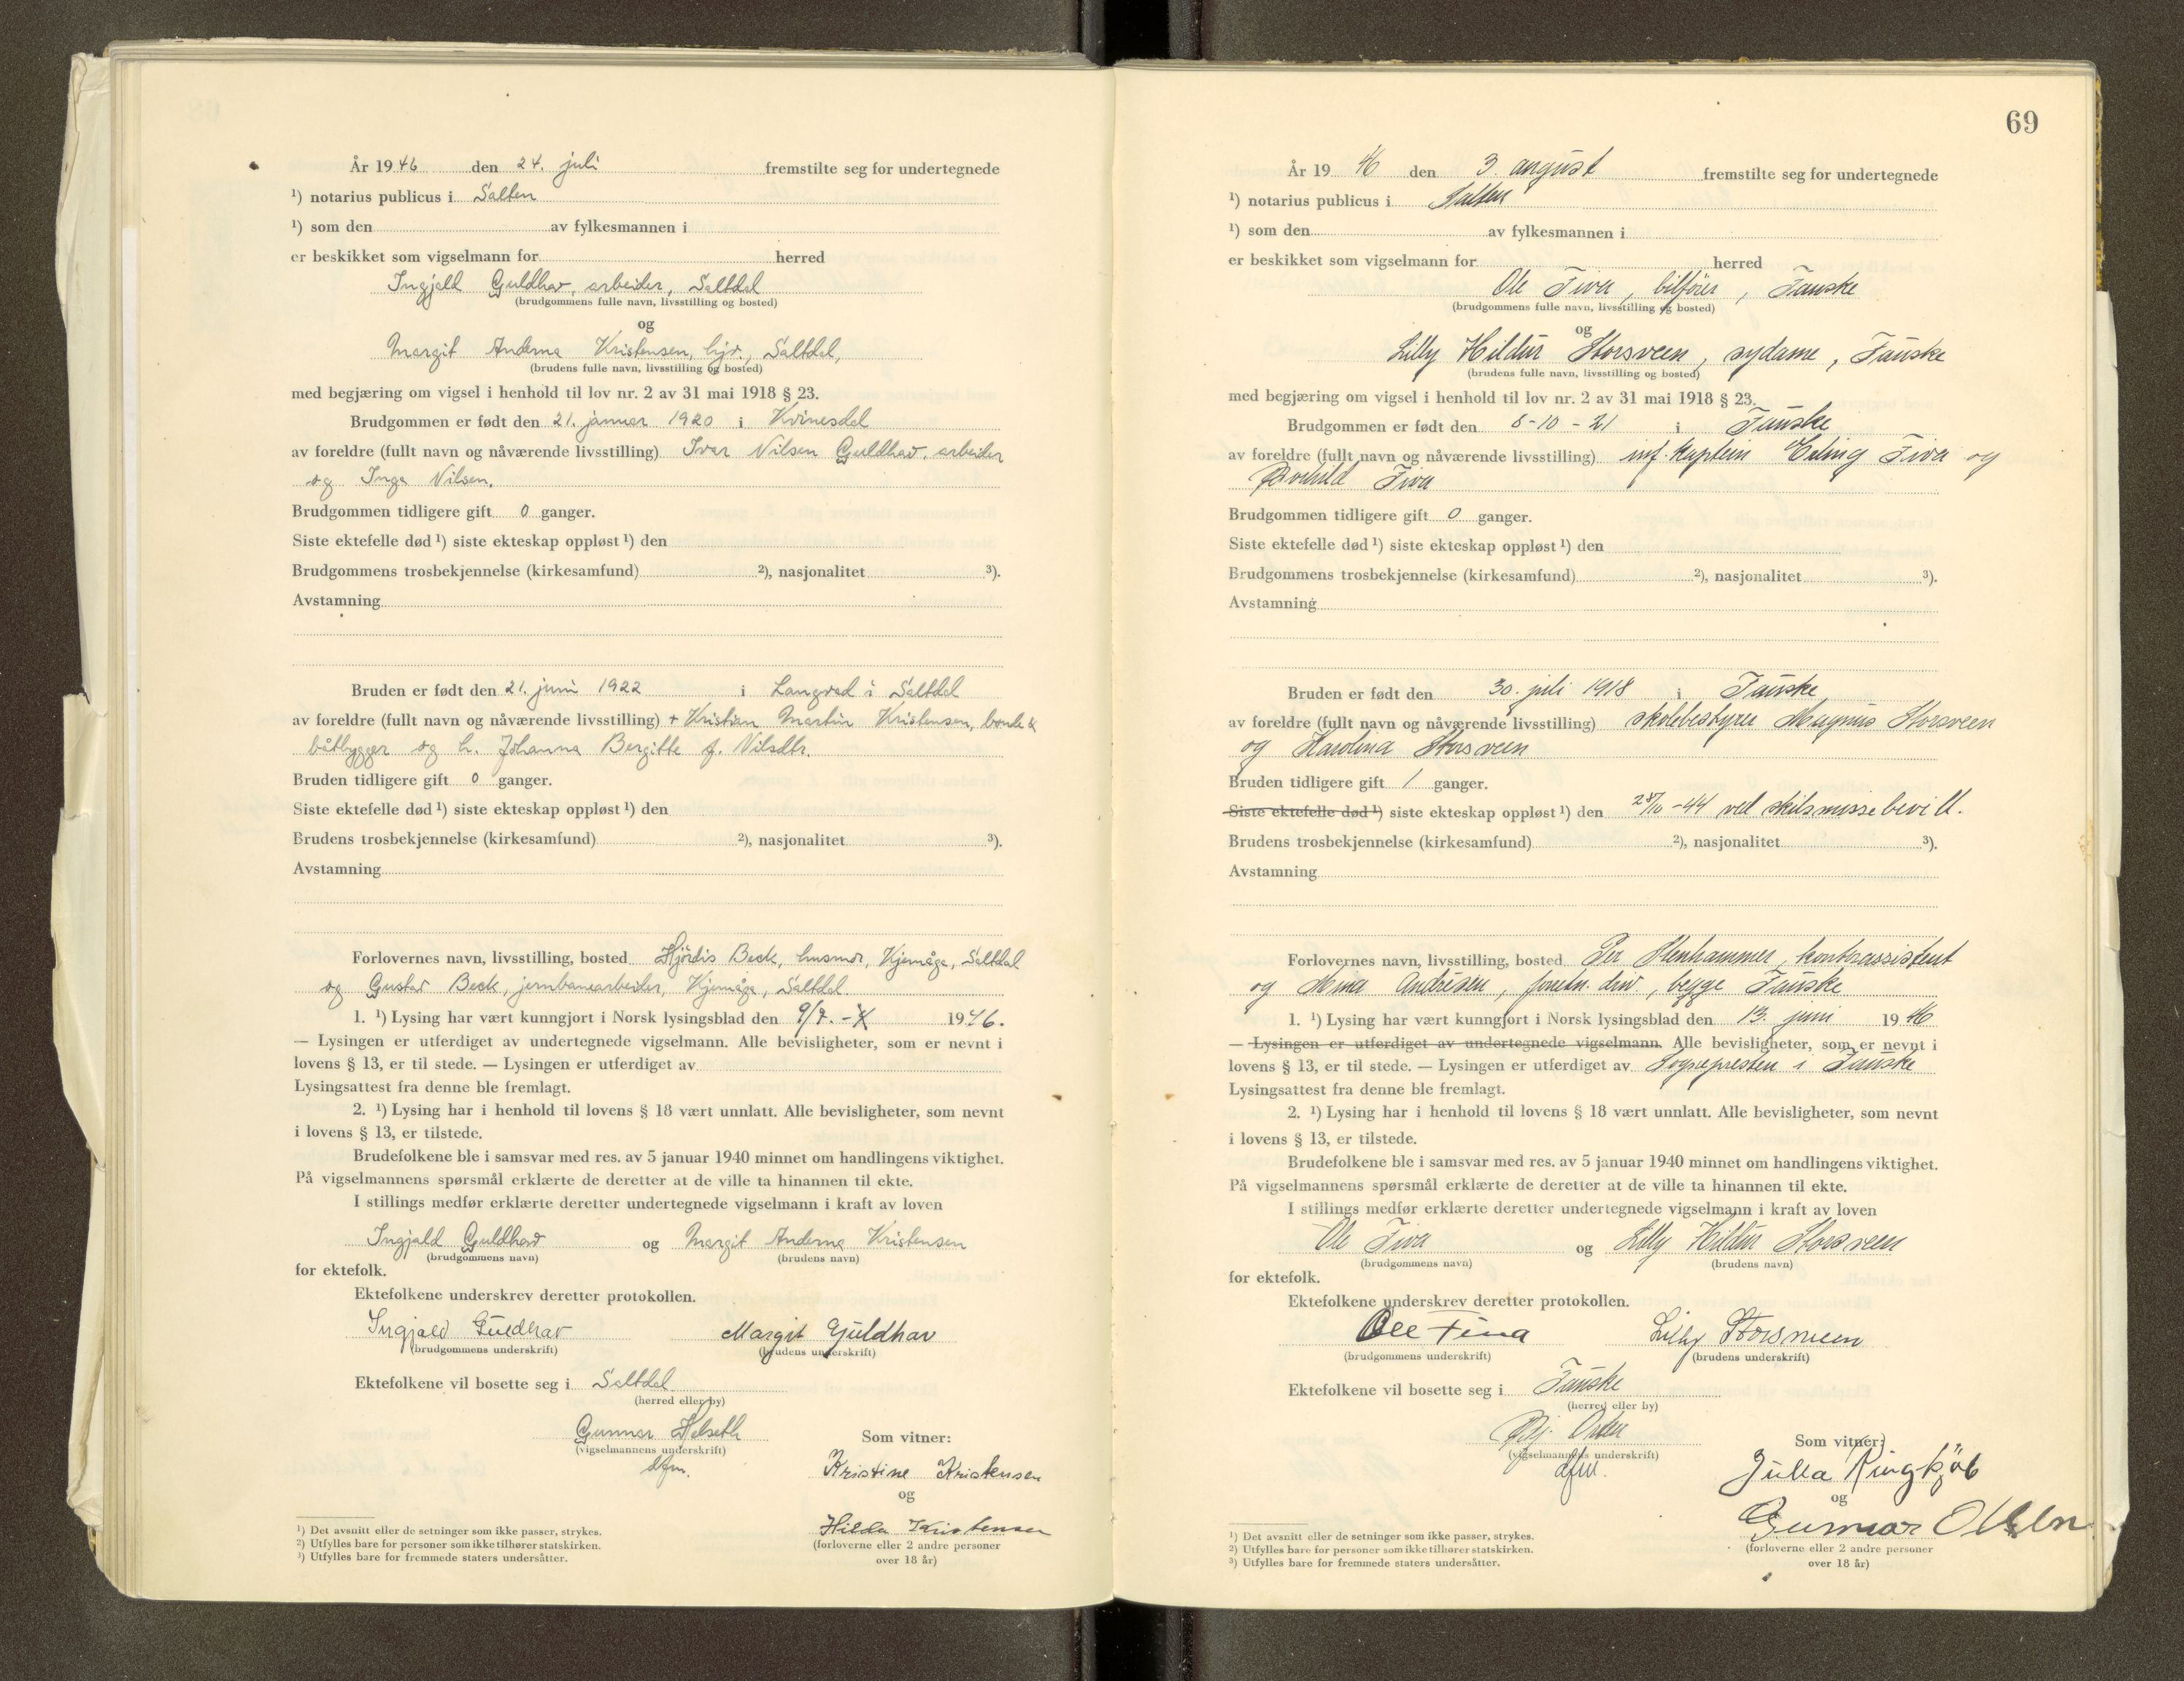 År 1946 den 24. juli fremstilte seg for undertegnede
¹) notarius publicus i Salten
¹) som den av fylkesmannen i
er beskikket som vigselmann for herred
Ingjald Guldhav, arbeider, Saltdal
(brudgommens fulle navn, livsstilling og bosted)
og
Margit Anderna Kristensen, hjv., Saltdal,
(brudens fulle navn, livsstilling og bosted)
med begjæring om vigsel i henhold til lov nr. 2 av 31 mai 1918 § 23.
Brudgommen er født den 21. januar 1920 i Kvinesdal
av foreldre (fullt navn og nåværende livsstilling) Ivar Nilsen Guldhav, arbeider
og Inga Nilsen.
Brudgommen tidligere gift 0 ganger.
Siste ektefelle død ¹) siste ekteskap oppløst ¹) den
Brudgommens trosbekjennelse (kirkesamfund) ²), nasjonalitet ³).
Avstamning
Bruden er født den 21. juni 1922 i Langvad i Saltdal
av foreldre (fullt navn og nåværende livsstilling) + Kristian Martin Kristensen, bonde &
båtbygger og h. Johanna Bergitte f. Nilsdtr.
Bruden tidligere gift 0 ganger.
Siste ektefelle død ¹) siste ekteskap oppløst ¹) den
Brudens trosbekjennelse (kirkesamfund) ²), nasjonalitet ³).
Avstamning
Forlovernes navn, livsstilling, bosted Hjørdis Beck, husmor, Kjemåga, Saltdal
og Gustav Beck, jernbanearbeider, Kjemåga, Saltdal.
1. ¹) Lysing har vært kunngjort i Norsk lysingsblad den 9/7. - 1946.
— Lysingen er utferdiget av undertegnede vigselmann. Alle bevisligheter, som er nevnt i
lovens § 13, er til stede. — Lysingen er utferdiget av
Lysingsattest fra denne ble fremlagt.
2. ¹) Lysing har i henhold til lovens § 18 vært unnlatt. Alle bevisligheter, som nevnt
i lovens § 13, er tilstede.
Brudefolkene ble i samsvar med res. av 5 januar 1940 minnet om handlingens viktighet.
På vigselmannens spørsmål erklærte de deretter at de ville ta hinannen til ekte.
I stillings medfør erklærte deretter undertegnede vigselmann i kraft av loven
Ingjald Guldhav og Margit Anderna Kristensen
(brudgommens navn) (brudens navn)
for ektefolk.
Ektefolkene underskrev deretter protokollen.
Ingjald Guldhav Margit Guldhav
(brudgommens underskrift) (brudens underskrift)
Ektefolkene vil bosette seg i Saltdal
(herred eller by)
Gunnar Helseth
(vigselmannens underskrift)
dfm.
Som vitner:
Kristine Kristensen
og
Hilda Kristensen
(forloverne eller 2 andre personer
over 18 år)
¹) Det avsnitt eller de setninger som ikke passer, strykes.
²) Utfylles bare for personer som ikke tilhører statskirken.
³) Utfylles bare for fremmede staters undersåtter.
69
År 1946 den 3. august fremstilte seg for undertegnede
¹) notarius publicus i Salten
¹) som den av fylkesmannen i
er beskikket som vigselmann for herred
Ole Fiva, bilfører, Fauske
(brudgommens fulle navn, livsstilling og bosted)
og
Lilly Hildur Storsveen, sydame, Fauske
(brudens fulle navn, livsstilling og bosted)
med begjæring om vigsel i henhold til lov nr. 2 av 31 mai 1918 § 23.
Brudgommen er født den 8-10-21 i Fauske
av foreldre (fullt navn og nåværende livsstilling) inf. kaptein Fiva og
Fiva
Brudgommen tidligere gift 0 ganger.
Siste ektefelle død ¹) siste ekteskap oppløst ¹) den
Brudgommens trosbekjennelse (kirkesamfund) ²), nasjonalitet ³).
Avstamning
Bruden er født den 30. juli 1918 i Fauske
av foreldre (fullt navn og nåværende livsstilling) skolebestyrer Magnus Storsveen
og Karolina Storsveen
Bruden tidligere gift 1 ganger.
Siste ektefelle død ¹) siste ekteskap oppløst ¹) den 28/10-44 ved skilsmissebevill.
Brudens trosbekjennelse (kirkesamfund) ²), nasjonalitet ³).
Avstamning
Forlovernes navn, livsstilling, bosted Per Stenhammer, kontorassistent
og Andresen, forretn. driv, begge Fauske
1. ¹) Lysing har vært kunngjort i Norsk lysingsblad den 13. juni 1946
— Lysingen er utferdiget av undertegnede vigselmann. Alle bevisligheter, som er nevnt i
lovens § 13, er til stede. — Lysingen er utferdiget av Sognepresten i Fauske
Lysingsattest fra denne ble fremlagt.
2. ¹) Lysing har i henhold til lovens § 18 vært unnlatt. Alle bevisligheter, som nevnt
i lovens § 13, er tilstede.
Brudefolkene ble i samsvar med res. av 5 januar 1940 minnet om handlingens viktighet.
På vigselmannens spørsmål erklærte de deretter at de ville ta hinannen til ekte.
I stillings medfør erklærte deretter undertegnede vigselmann i kraft av loven
Ole Fiva og Lilly Hildur Storsveen
(brudgommens navn) (brudens navn)
for ektefolk.
Ektefolkene underskrev deretter protokollen.
Ole Fiva Lilly Storsveen
(brudgommens underskrift) (brudens underskrift)
Ektefolkene vil bosette seg i Fauske
(herred eller by)
(vigselmannens underskrift)
dfm.
Som vitner:
Julla Ringkjøb
og
Gunnar Olsen
(forloverne eller 2 andre personer
over 18 år)
¹) Det avsnitt eller de setninger som ikke passer, strykes.
²) Utfylles bare for personer som ikke tilhører statskirken.
³) Utfylles bare for fremmede staters undersåtter.